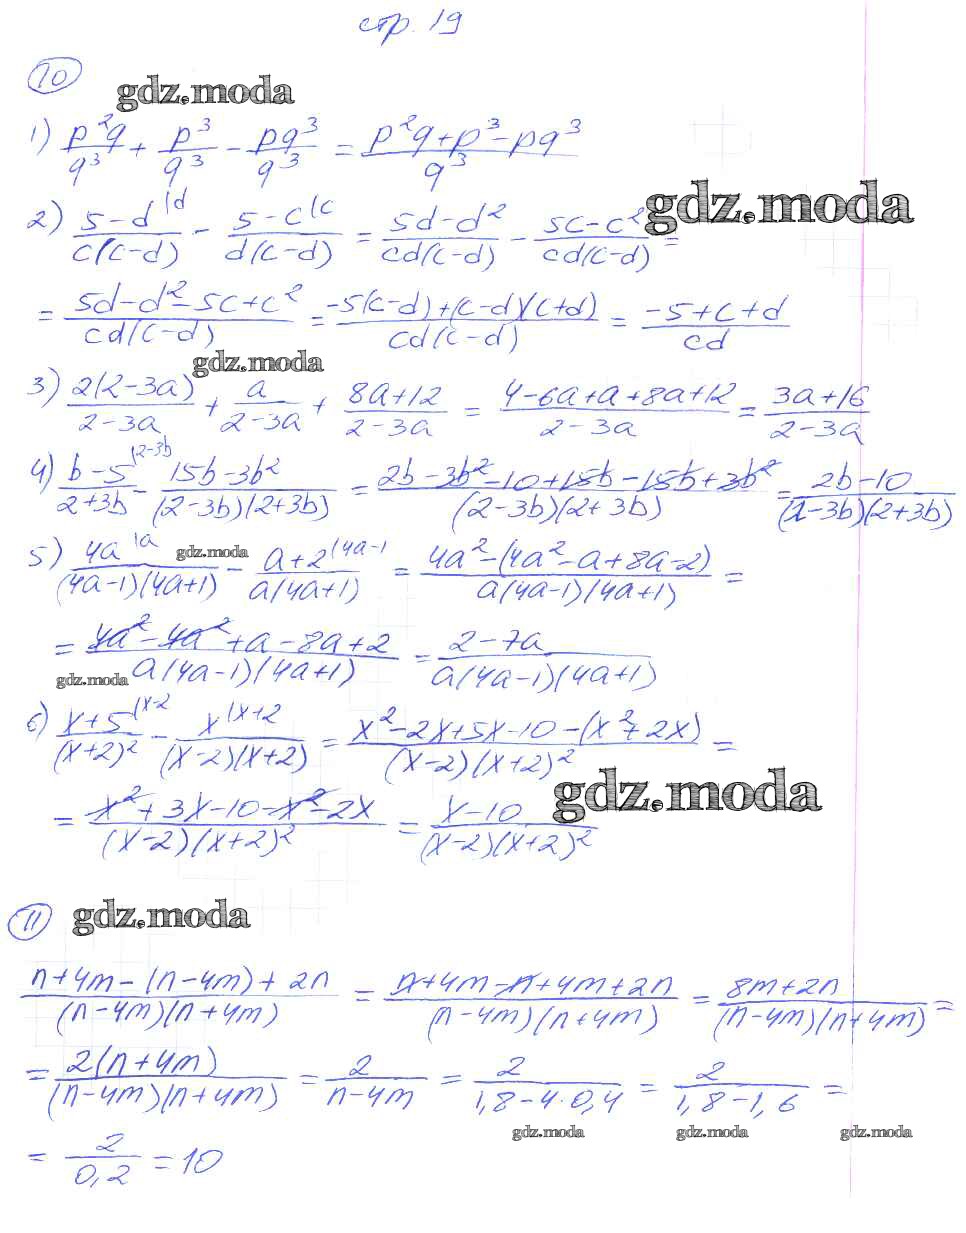 стр. 19
10
gdz.moda
1) p²q/q³ + p³/q³ - pq³/q³ = (p²q+p³-pq³)/q³
gdz.moda
2) (5-d)/(c(c-d)) |d - (5-c)/(d(c-d)) |c = (5d-d²)/(cd(c-d)) - (5c-c²)/(cd(c-d)) =
= (5d-d²-5c+c²)/(cd(c-d)) = (-5(c-d)+(c-d)(c+d))/(cd(c-d)) = (-5+c+d)/(cd)
gdz.moda
3) 2(2-3a)/(2-3a) + a/(2-3a) + (8a+12)/(2-3a) = (4-6a+a+8a+12)/(2-3a) = (3a+16)/(2-3a)
4) (b-5)/(2+3b) |2-3b - (15b-3b²)/((2-3b)(2+3b)) = (2b-3b²-10+15b-15b+3b²)/((2-3b)(2+3b)) = (2b-10)/((2-3b)(2+3b))
5) 4a/((4a-1)(4a+1)) |a - (a+2)/(a(4a+1)) |4a-1 = (4a²-(4a²-a+8a-2))/(a(4a-1)(4a+1)) =
gdz.moda
= (4a²-4a²+a-8a+2)/(a(4a-1)(4a+1)) = (2-7a)/(a(4a-1)(4a+1))
gdz.moda
6) (x+5)/(x+2)² |x-2 - x/((x-2)(x+2)) |x+2 = (x²-2x+5x-10-(x²+2x))/((x-2)(x+2)²) =
gdz.moda
= (x²+3x-10-x²-2x)/((x-2)(x+2)²) = (x-10)/((x-2)(x+2)²)
11
gdz.moda
(n+4m-(n-4m)+2n)/((n-4m)(n+4m)) = (n+4m-n+4m+2n)/((n-4m)(n+4m)) = (8m+2n)/((n-4m)(n+4m)) =
= 2(n+4m)/((n-4m)(n+4m)) = 2/(n-4m) = 2/(1,8-4·0,4) = 2/(1,8-1,6) =
gdz.moda gdz.moda gdz.moda
= 2/0,2 = 10